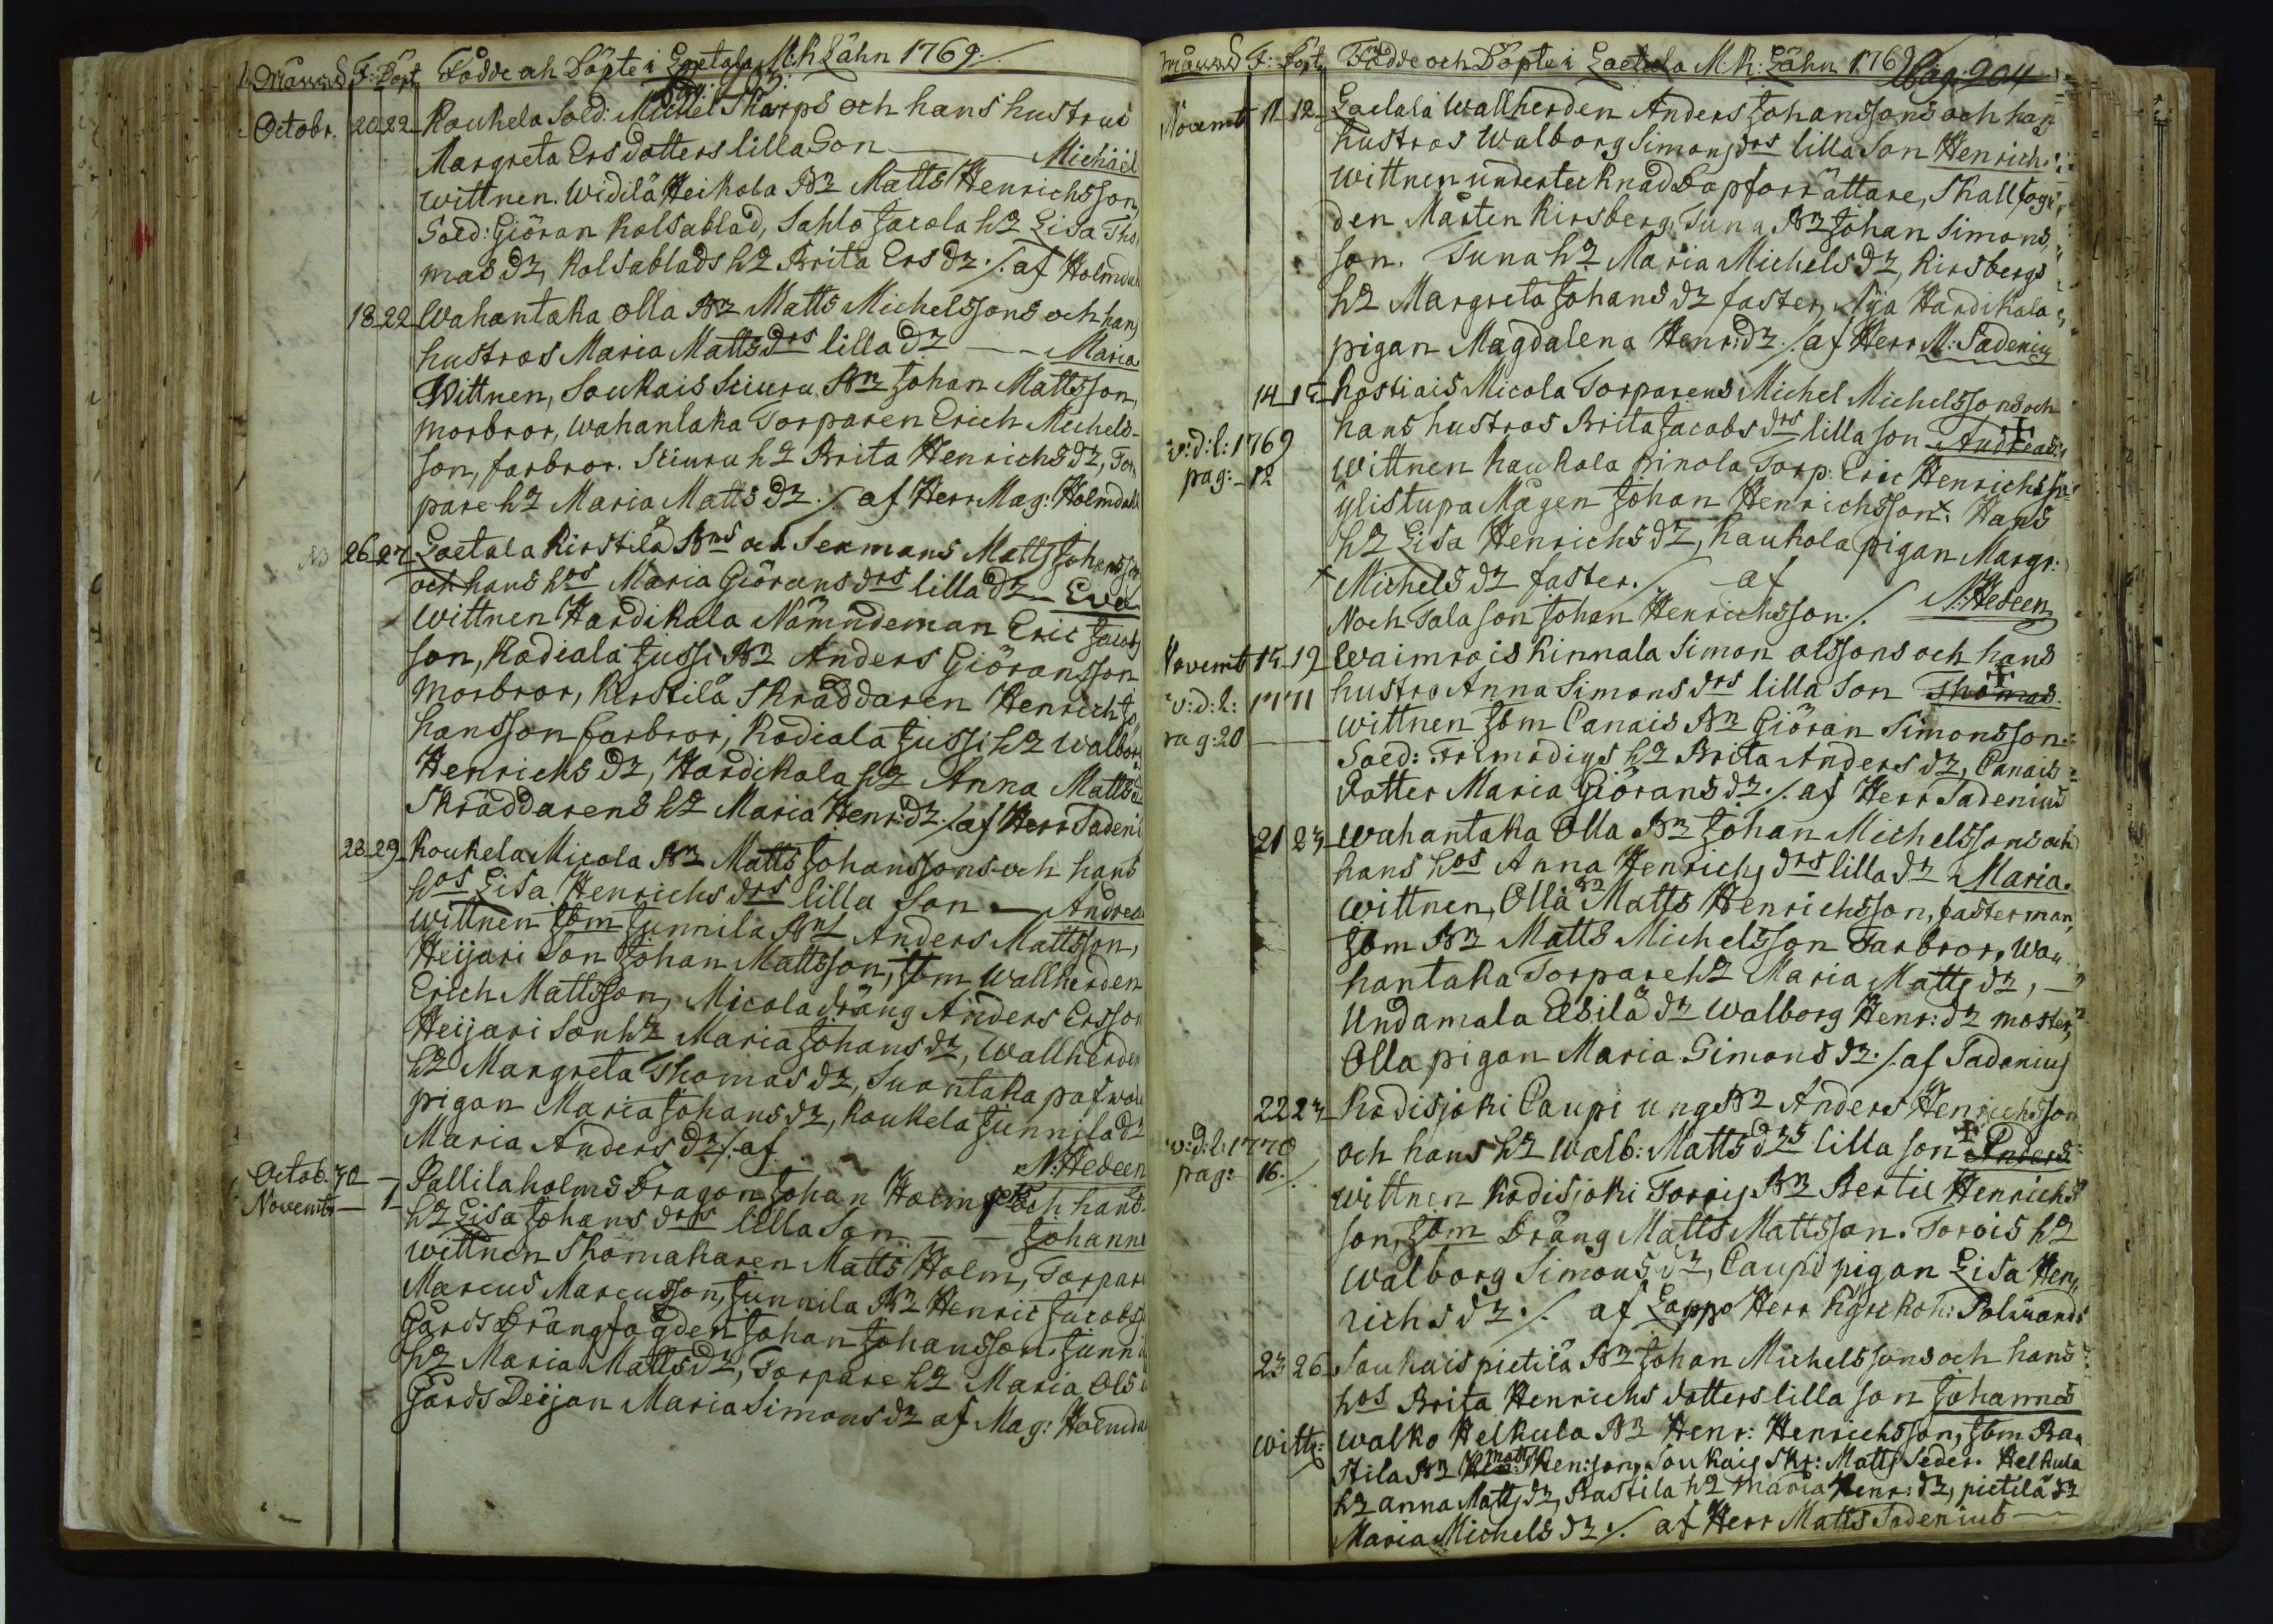 Månad F: Döpt Födde och Döpte i Laetala M:K Lähn 1769 ./.
Pag: 903:
Octobr. 20 22 Koukela Sold: Michel Skarps och hans hustrus
Margreta Ersdotters lilla Son — Michäel
Wittnen. Widilä Heikola Bn Matts Henrichsson,
Sold: Giöran Kolsablad, Sahlo Jacola h? Lisa Tho,
mas dr, Kolsablads h? Brita Ers dr ./. af Holmdal
18 22 Wahantaka Olla Bn Matts Michelssons och hans
hustros Maria Matts drs lilla dr — Maria
Wittnen, Soukais Sciuru Bn Johan Mattsson,
morbror, Wahantaka Torparen Erich Michels-
son, farbror. Sciuru h? Brita Henrichs dr, Tor
pare h? Maria Matts dr ./. af Herr Mag: Holmdahl
No 26 27 Laetala Kirstilä Bns och Sexmans Matts Johansson
och hans hos Maria Giörans drs lilla dr — Eva
Wittnen Hardikala Nämndeman Eric Jacobs
son, Kodiala Jussi Bn Anders Giöransson
morbror, Kirstilä Skräddaren Henrich Jo,
hansson farbror, Kodiala Jussi h? Walborg
Henrichs dr, Hardikala h? Anna Matts d
Skräddarens h? Maria Henr: dr ./. af Herr Tadeni
28 29 Koukela Micola Bn Matts Johanssons och hans
hos Lisa Henrichs drs lilla Son — Andrea
Wittnen Jbm Junnila Bn Anders Mattsson,
Heijari Son Johan Mattsson, Jbm Wallherden
Erich Mattsson, Micola dräng Anders Ersson
Heijari Son h? Maria Johans dr, Wallherden
h? Margreta Thomas dr, Suontaka pafwola
pigan Maria Johans dr, Koukela Junnila dr
Maria Anders dr ./. af
N: Hedeen
Octob. 30 — Pallilaholms Dragon Johan Holms och hans
Novembr — 1 h? Lisa Johans drs lilla Son — Johanne
Wittnen Skomakaren Matts Holm, Torpare
Marcus Marcusson, Junnila Bn Henric Jacobss
Gårds Drängfogden Johan Johansson. Junni
h? Maria Matts dr, Torpare h? Maria Ols d
Gårds Deijan Maria Simons dr af Mag: Holmda
Månad F: Döpt Födde och Döpte i Laetala M: K: Lähn 1769
Pag: 904
Novemb 11 12 Laelala Wallherden Anders Johanssons och hans
hustros Walborg Simons drs lilla Son Henrich.
Wittnen undertecknad Döpförrättare, Skallfogu,
den Mårten Kirsberg, Tuna Bn Johan Simons
son. Tuna h? Maria Michels dr, Kirsbergs
h? Margreta Johans dr faster, Nya Hardikala
pigan Magdalena Henr: dr ./. af Herr M: Tadenius
14 15 Kostiais Micola Torparens Michel Michelssons och
hans hustros Brita Jacobs drs lilla Son Andreas
v:d:l: 1769
Wittnen Kaukola Pinola Torp: Eric Henrichsson
pag: 12
ylistupa Mågen Johan Henrichsson. Hans
h? Lisa Henrichs dr, Kaukola pigan Margr:
Michels dr faster. / af
N: Hedeen
Noch Tala son Johan Henrichsson ./.
Novemb 15 19 Waimrois Rinnala Simon Olssons och hans
v:d:l: 1771 hustro Anna Simons drs lilla Son Thomas.
Wittnen Jbm Canais Bn Giöran Simonsson
pag: 20
Sold: Frimodigs h? Brita Anders dr, Canais
Dotter Maria Giörans dr ./. af Herr Tadenius
21 23 Wahantaka Olla Bn Johan Michelssons och
hans hos Anna Henrichs drs lilla dr Maria.
Wittnen, Olla Bn Matts Henrichsson, fasterman,
Jbm Bn Matts Michelsson Farbror, Wa,
hantaka Torpare h? Maria Matts dr, —
Undamala Elsilä dr Walborg Henr: dr moster,
Olla pigan Maria Simons dr ./. af Tadenius
22 23 Kodisjoki Caupi ung Bn Anders Henrichsson
v:d:l: 1770 och hans h? Walb: Matts drs lilla Son Anders
pag: 16. Wittnen Kodisjoki Torrois Bn Bertil Henrichs
son, Jbm Dräng Matts Mattsson. Torois h?
Walborg Simons dr, Caupi pigan Lisa Hen,
richs dr ./. af Lappo Herr Kyrckoh: Polviand
23 26 Soukais pietilä Bn Johan Michelssons och hans
hos Brita Henrichs dotters lilla Son Johannes
Wittn: Walko Helkula Bn Henr: Henrichsson, Jbm Ra,
stila Bn Matts Hen:son, Soukais Skr: Matts Seder. Helkula
h? anna Matts dr, Rastila h? Maria Henr: dr, pietilä dr
Maria Michels dr ./. af Herr Matts Tadenius